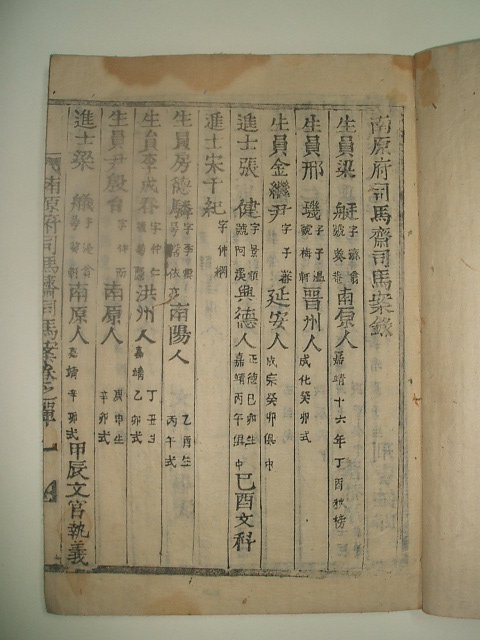 南原府司馬齋司馬案錄
生員梁 艇 南原人 嘉靖十六年丁酉秋榜
生員邢 璣 字子溫 晋州人 成化癸卯式
生員金繼尹 字子 延安人 成宗癸卯俱中
進士張 健 字景順 號阿溪 興德人 正德己卯生 嘉靖丙午俱中 己酉文科
進士宋千紀 字仲綱
生員房德驎 字 南陽人 乙酉生 丙午式
生員李成春 字仲仁 洪州人 丁丑生 嘉靖乙卯式
生員尹殷台 字仲 南原人 庚申生 辛卯式
進士梁 字 南原人 嘉靖辛卯式 甲辰文官執義
南原府司馬齋司馬案卷之單 一